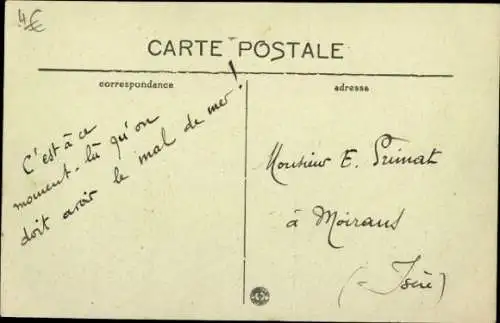 4€
CARTE POSTALE
correspondance
adresse
C'est à ce
moment-là qu'on
doit avoir le mal de mer!
Monsieur E. Primat
à Moirans
(Isère)